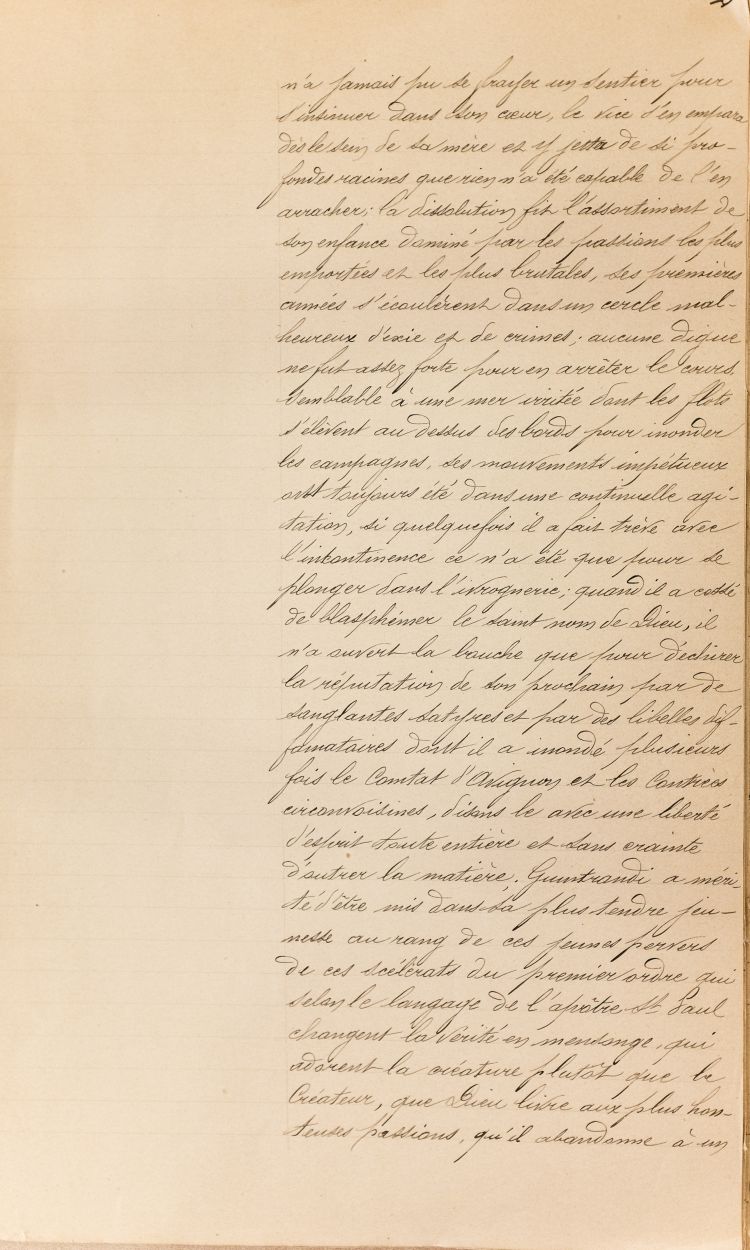 n'a jamais pu se frayer un sentier pour
s'insinuer dans son cœur, le vice s'en empara
dès le sein de sa mère et y jetta de si pro-
fondes racines que rien n'a été capable de l'en
arracher; la dissolution fit l'assortiment de
son enfance dominé par les passions les plus
emportées et les plus brutales, ses premières
années s'écoulèrent dans un cercle mal-
heureux d'exie et de crimes; aucune digue
ne fut assez forte pour en arrêter le cours.
Semblable à une mer irritée dont les flots
s'élèvent au dessus des bords pour inonder
les campagnes, ses mouvements impétueux
ont toujours été dans une continuelle agi-
tation, si quelquefois il a fait trève avec
l'intontinence ce n'a été que pour se
plonger dans l'ivrognerie; quand il a cessé
de blasphémer le saint nom de Dieu, il
n'a ouvert la bouche que pour déchirer
la réputation de son prochain par de
sanglantes satyres et par des libelles dif-
famatoires dont il a inondé plusieurs
fois le Comtat d'Avignon et les Contrées
circonvoisines, disons le avec une liberté
d'esprit toute entière et sans crainte
d'outrer la matière; Guintrandi a méri-
té d'être mis dans sa plus tendre jeu-
nesse au rang de ces jeunes pervers
de ces scélérats du premier ordre qui
selon le langage de l'apôtre St Paul
changent la vérité en mensonge, qui
adorent la créature plutôt que le
Créateur, que Dieu livre aux plus hon-
teuses passions, qu'il abandonne à un